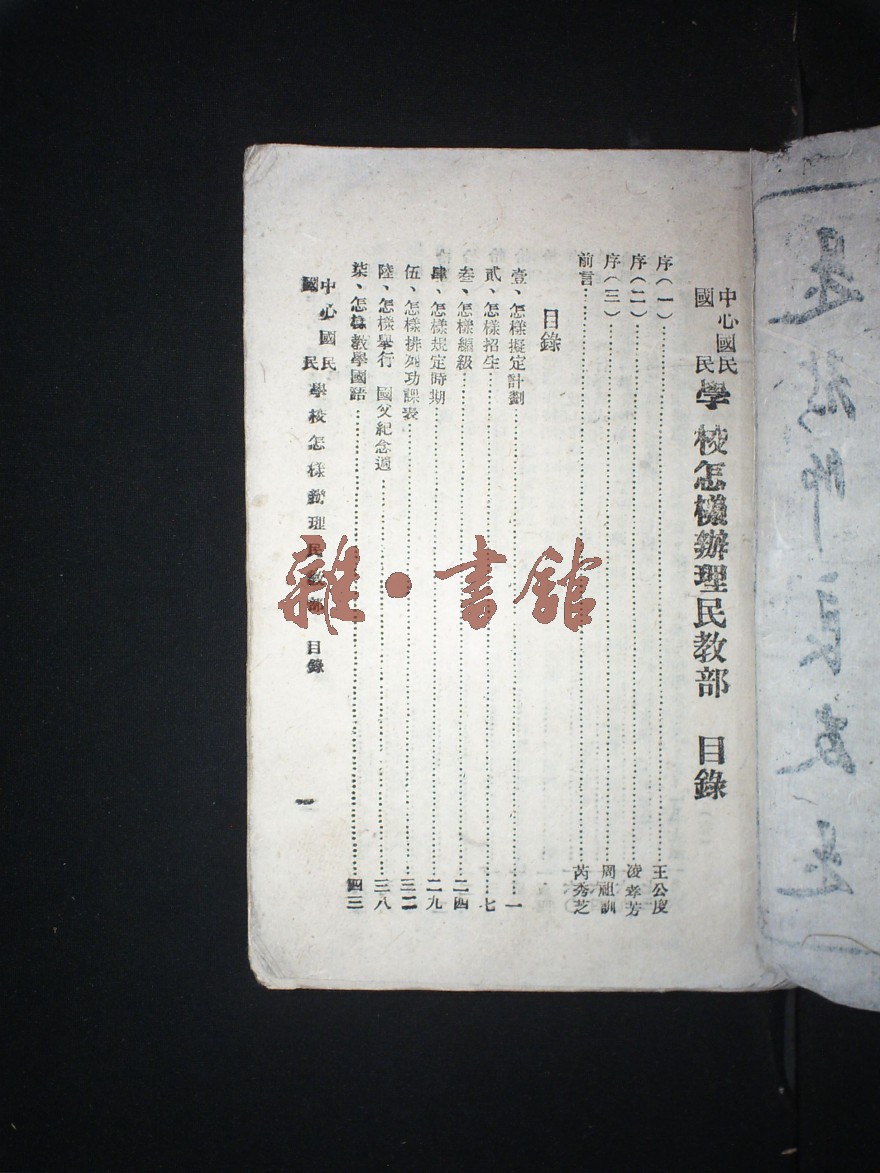 中心國民
國民學校怎樣辦理民教部 目錄
序(一)……王公度
序(二)……凌孝芳
序(三)……周祖訓
前言……芮秀芝
目錄
壹、怎樣擬定計劃……一
貳、怎樣招生……七
叁、怎樣編級……二四
肆、怎樣規定時期……二九
伍、怎樣排列功課表……三二
陸、怎樣舉行 國父紀念週……三八
柒、怎樣教學國語……四三
中心國民
國民學校怎樣辦理民教部 目錄
一
雜·書館